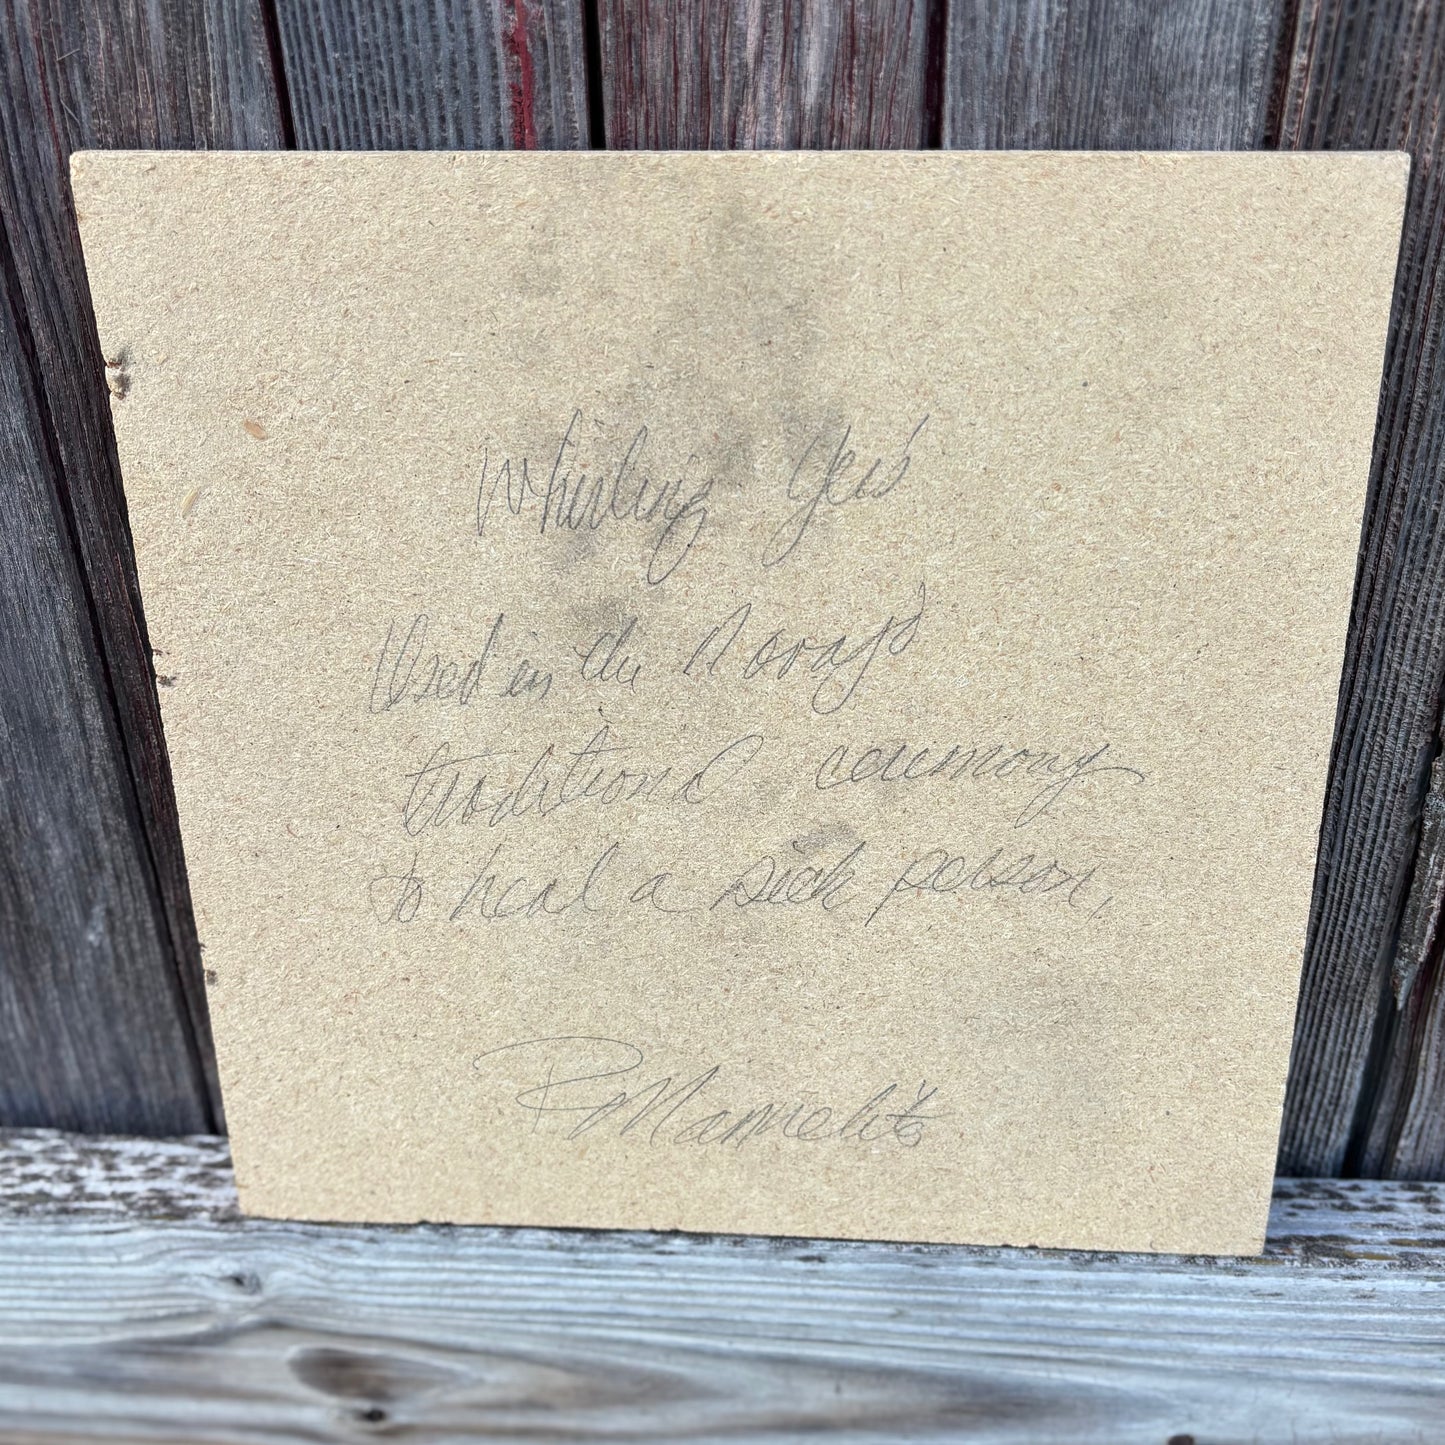 Whirling Yei's
Used in the Navajo
traditional ceremony
to heal a sick person,
P Mamelito